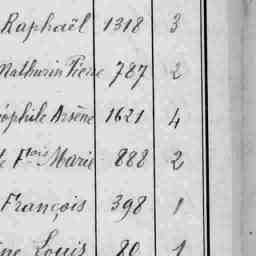 Raphaël 1318 3
Mathurin Pierre 787 2
éophile Arsène 1621 4
Fois Marie 888 2
François 398 1
Louis 80 1